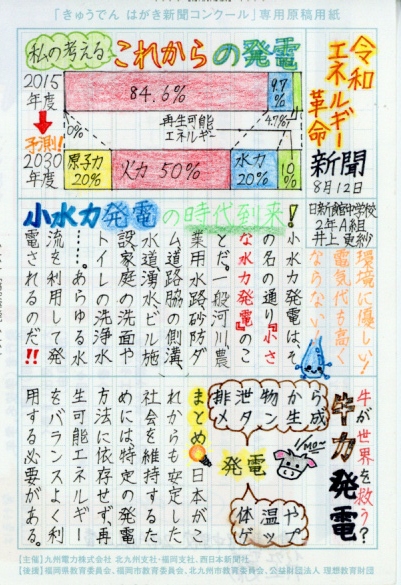 「きゅうでん はがき新聞コンクール」専用原稿用紙
令和
エネルギー
革命
新聞
8月12日
日新館中学校
2年A組
井上 更紗
私の考える これからの発電
2015
年度
84.6%
9.7
%
0%
再生可能
エネルギー
4.7%
予測!
2030
年度
原子力
20%
火力 50%
水力
20%
10
%
小水力発電の時代到来!
環境に優しい!
電気代も高く
ならない!
小水力発電は、そ
の名の通り『小さ
な水力発電』のこ
とだ。一般河川、農
業用水路、砂防ダ
ム、道路脇の側溝、
水道、湧水、ビル施
設、家庭の洗面や
トイレの洗浄水
……。あらゆる水
流を利用して発
電されるのだ!!
牛が世界を救う?
牛力発電
成
から生
物ン
泄タ
排メ
発電
やプ
温ッ
体ゲ
まとめ 日本がこ
れからも安定した
社会を維持するた
めには、特定の発電
方法に依存せず、再
生可能エネルギー
をバランスよく利
用する必要がある。
[主催] 九州電力株式会社 北九州支社・福岡支社、西日本新聞社
[後援] 福岡県教育委員会、福岡市教育委員会、北九州市教育委員会、公益財団法人 理想教育財団